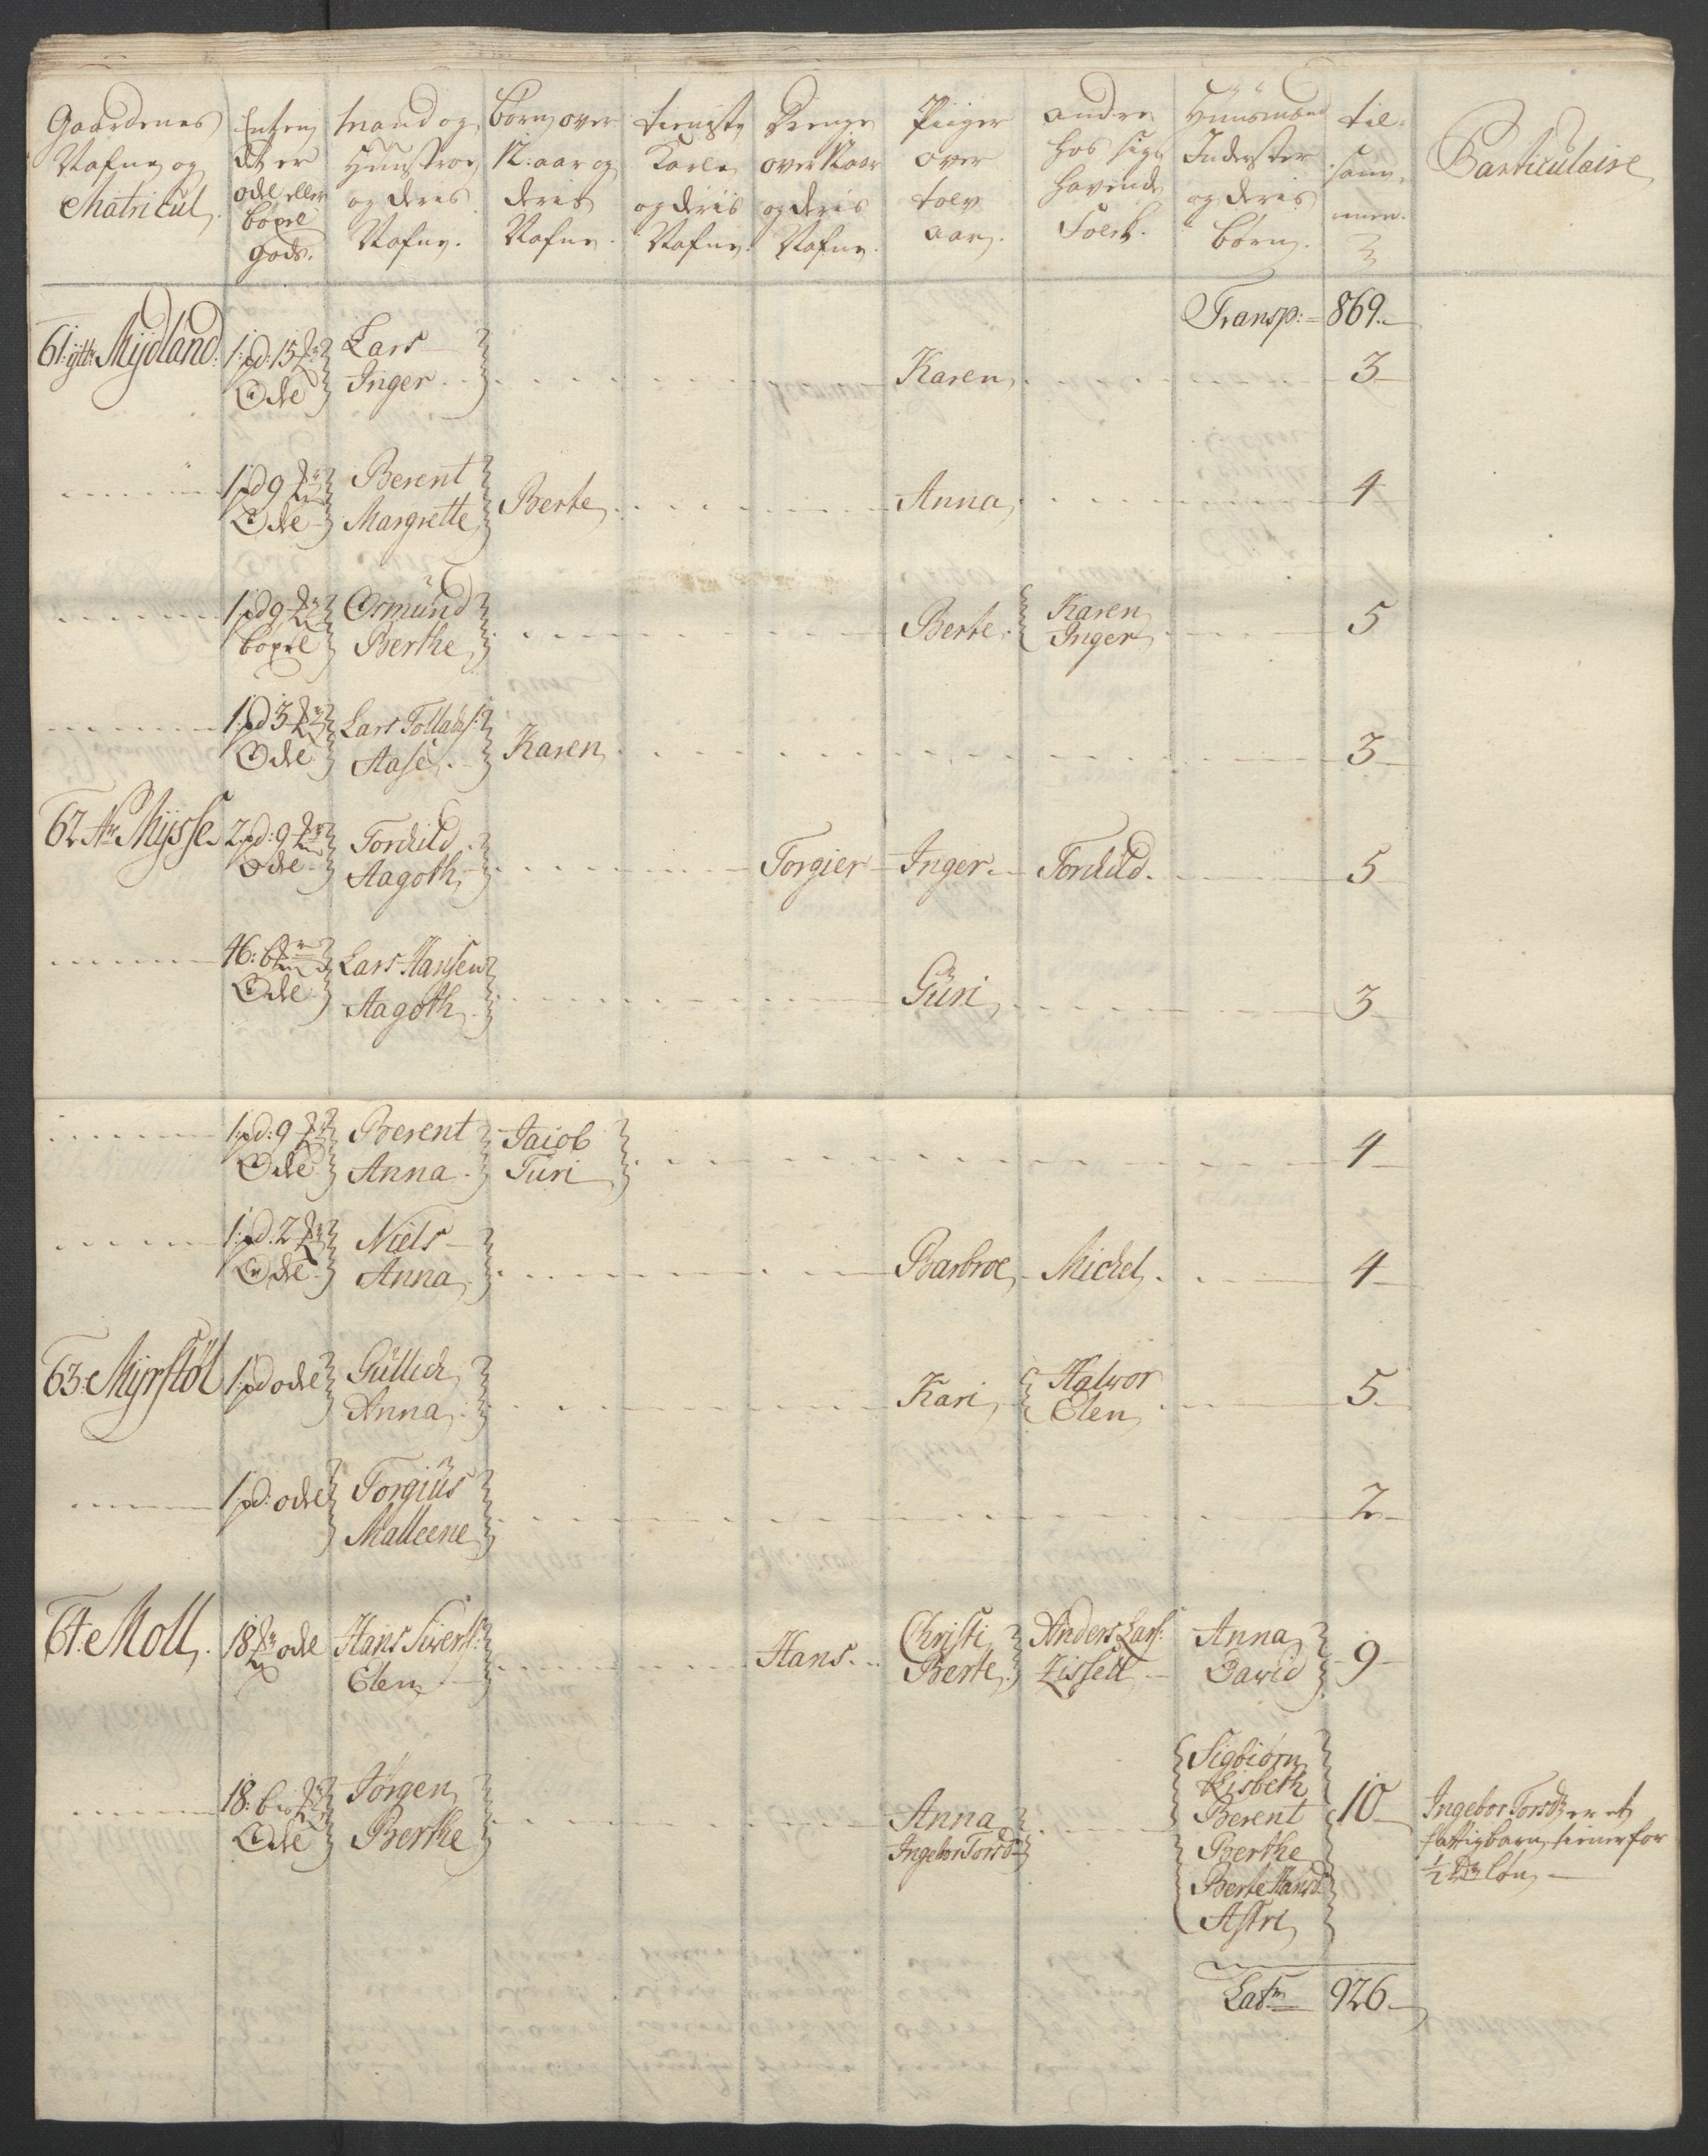 Gaardenes Nafne og Matricul.
Enten det er odel eller böxel gods.
Mand og Huustroe og deres Nafne.
Børn over 12: aar og deris Nafne.
Tieniste Karle og deris Nafne.
Drenge over 12 aar og deris Nafne.
Piiger over tolv aar.
andre hos sig havende Folck.
Huusmænd Inderster og deris børn.
til sammen.
Particulaire
Transp: 869.
61: ytt: Mydland. 1: pd: 15 Ode Lars Inger Karen 3
1 pd 9 Ode Berent Margrette Berte Anna 4
1 pd 9 böxel Ormund Berthe Berte Karen Inger 5
1: pd 3 Ode Lars Tollachs: Aase Karen 3
62 Mysse 2 pd: 9 Ode Torchild Aagoth Torgier Inger Torchild 5
16: Ode Lars Hansen Aagoth Guri 3
1 pd: 9 Ode Berent Anna Jacob Turi 4
1: pd. 2 Ode Niels Anna Barbroe Michel 4
63: Myrstöl 1: pd ode Gullich Anna Kari Halvor Elen 5
1 pd: ode Torgius Malleene 2
64: Moll 18 ode Hans Siverts: Elen Hans Christi Berte Anders Lars: Lissell Anna David 9
18: Ode Jørgen Berthe Anna Ingebor Torsd: Sigbiørn Lisbeth Berent Berthe Berte Hansd: Astri 10
Ingebor Torsd: er et
fattig barn, tiener for
1/2 løn
Lat: 926